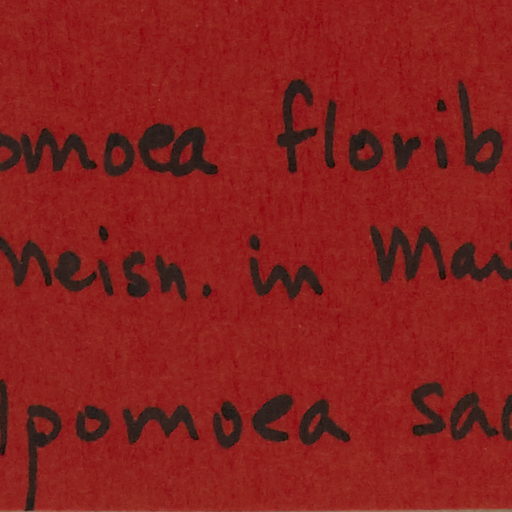 omoea florib
Meisn. in Mar
Ipomoea sac